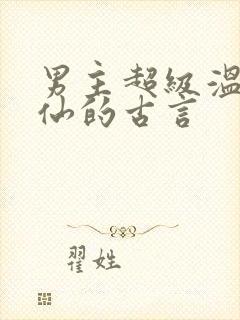 男主超级温
仙的古言
翟姓